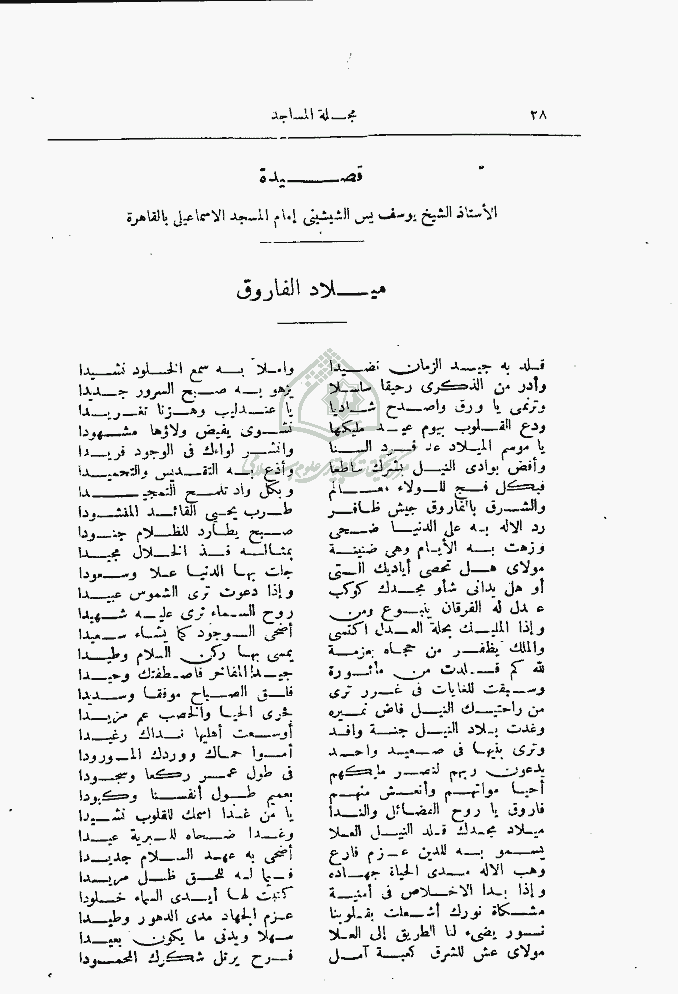 ٢٨ مجلة المساجد
قصيدة
الأستاذ الشيخ يوسف يس الشيشيني إمام المسجد الاسماعيلي بالقاهرة
ميلاد الفاروق
قلد به جيد الزمان نضيدا واملأ به سمع الخلود نشيدا
وأدر من الذكرى رحيقا سلسلا يزهو به صبح السرور جديدا
وترنمى يا ورق واصدح شاديا يا عندليب وهزنا تغريدا
ودع القلوب بيوم عيد مليكها نشوى يفيض ولاؤها مشهودا
يا موسم الميلاد عد فرد السنا وانشر لواءك فى الوجود فريدا
وأفض بوادى النيل بشرك ساطعا وأذع به التقديس والتحميدا
فبكل فج للولاء معالم وبكل واد تلمح التمجيدا
والشرق بالفاروق جيش ظافر طرب يحيى القائد المنشودا
رد الاله به على الدنيا ضحى صبح يطارد للظلام جنودا
وزهت به الأيام وهى ضنينة بمثاله فذ الخلال مجيدا
مولاى هل تحصى أياديك التى جلت بها الدنيا علا وسعودا
أو هل يدانى شأو مجدك كوكب وإذا دعوت ترى الشموس عبيدا
عدل له الفرقان ينبوع ومن روح السماء ترى عليه شهيدا
وإذا المليك بحلة العدل اكتسى أضحى الوجود كما يشاء سعيدا
والملك يظفر من حجاه بعزمة يمسى بها ركن السلام وطيدا
لله كم قلدت من مأثورة جيد المفاخر فاصطفتك وحيدا
وسبقت للغايات فى غرر ترى فلق الصباح موفقا وسديدا
من راحتيك النيل فاض نميره فجرى الحيا والخصب عم مزيدا
وغدت بلاد النيل جنة وافد أوسعت أهليها نداك رغيدا
وترى بنيها فى صعيد واحد أموا حماك ووردك المورودا
يدعون ربهم لنصر مليكهم فى طول عمر ركعا وسجودا
أحيا مواتهم وأنعش منهم بعميم طول أنفسا وكبودا
فاروق يا روح الفضائل والندا يا من غدا اسمك للقلوب نشيدا
ميلاد مجدك قلد النيل العلا وغدا ضحاه للبرية عيدا
يسمو به للدين عزم فارع أضحى به عهد السلام جديدا
وهب الاله مدى الحياة جهاده فيا له للحق ظل مريدا
وإذا بدا الاخلاص فى أمنية كتبت لها أيدى السماء خلودا
مشكاة نورك أشعلت بقلوبنا عزم الجهاد مدى الدهور وطيدا
نور يضىء لنا الطريق إلى العلا سهلا ويدنى ما يكون بعيدا
مولاى عش للشرق كعبة آمل فرح يرتل شكرك المحمودا